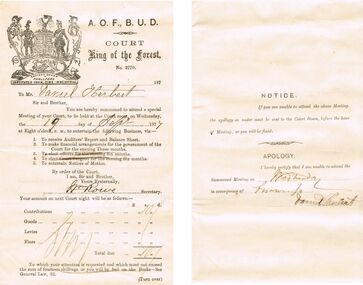 A. O. F., B. U. D.
COURT
King of the Forest,
No. 2770.
187
To Mr. Daniel Herbert
Sir and Brother,
You are hereby summoned to attend a special
Meeting of your Court, to be held at the Court room on Wednesday,
the 19 day of Sept 1877
at Eight o'clock, P.M., to entertain the following Business, viz:—
1. To receive Auditors' Report and Balance Sheet.
2. To make financial arrangements for the government of the
Court for the ensuing Three months.
3. To elect officers for the ensuing 6 months.
4. To elect for the ensuing 6 months
5. To entertain Notice of Motion.
By order of the Court.
I am, Sir and Brother,
Yours Fraternally,
Secretary.
Your account on next Court night will be as follows:—
Contributions
Goods
Levies
Fines
Total due
To which your attention is requested and which must not exceed
the sum of fourteen shillings, or you will be on the Books—See
General Law, 52.
(Turn over)
NOTICE.
If you are unable to attend the above Meeting
the apology on under must be sent to the Court Room, before the hour
of Meeting, or you will be fined.
APOLOGY.
I hereby certify that I am unable to attend the
Summoned Meeting on Wednesday
in consequence of
Daniel Herbert